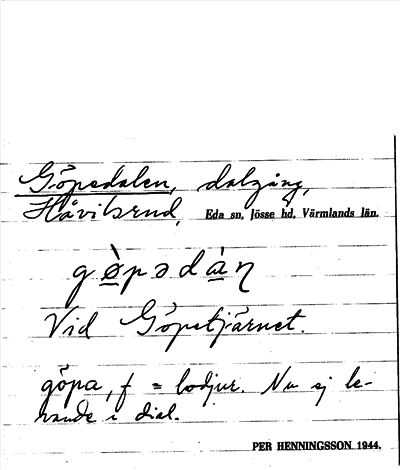 Göpedalen, dalgång,
Håvilsrud, Eda sn, Jösse hd, Värmlands län.
gø̀pədàṇ
Vid Göpetjärnet.
göpa, f = lodjur. Nu ej le-
vande i dial.
PER HENNINGSSON 1944.